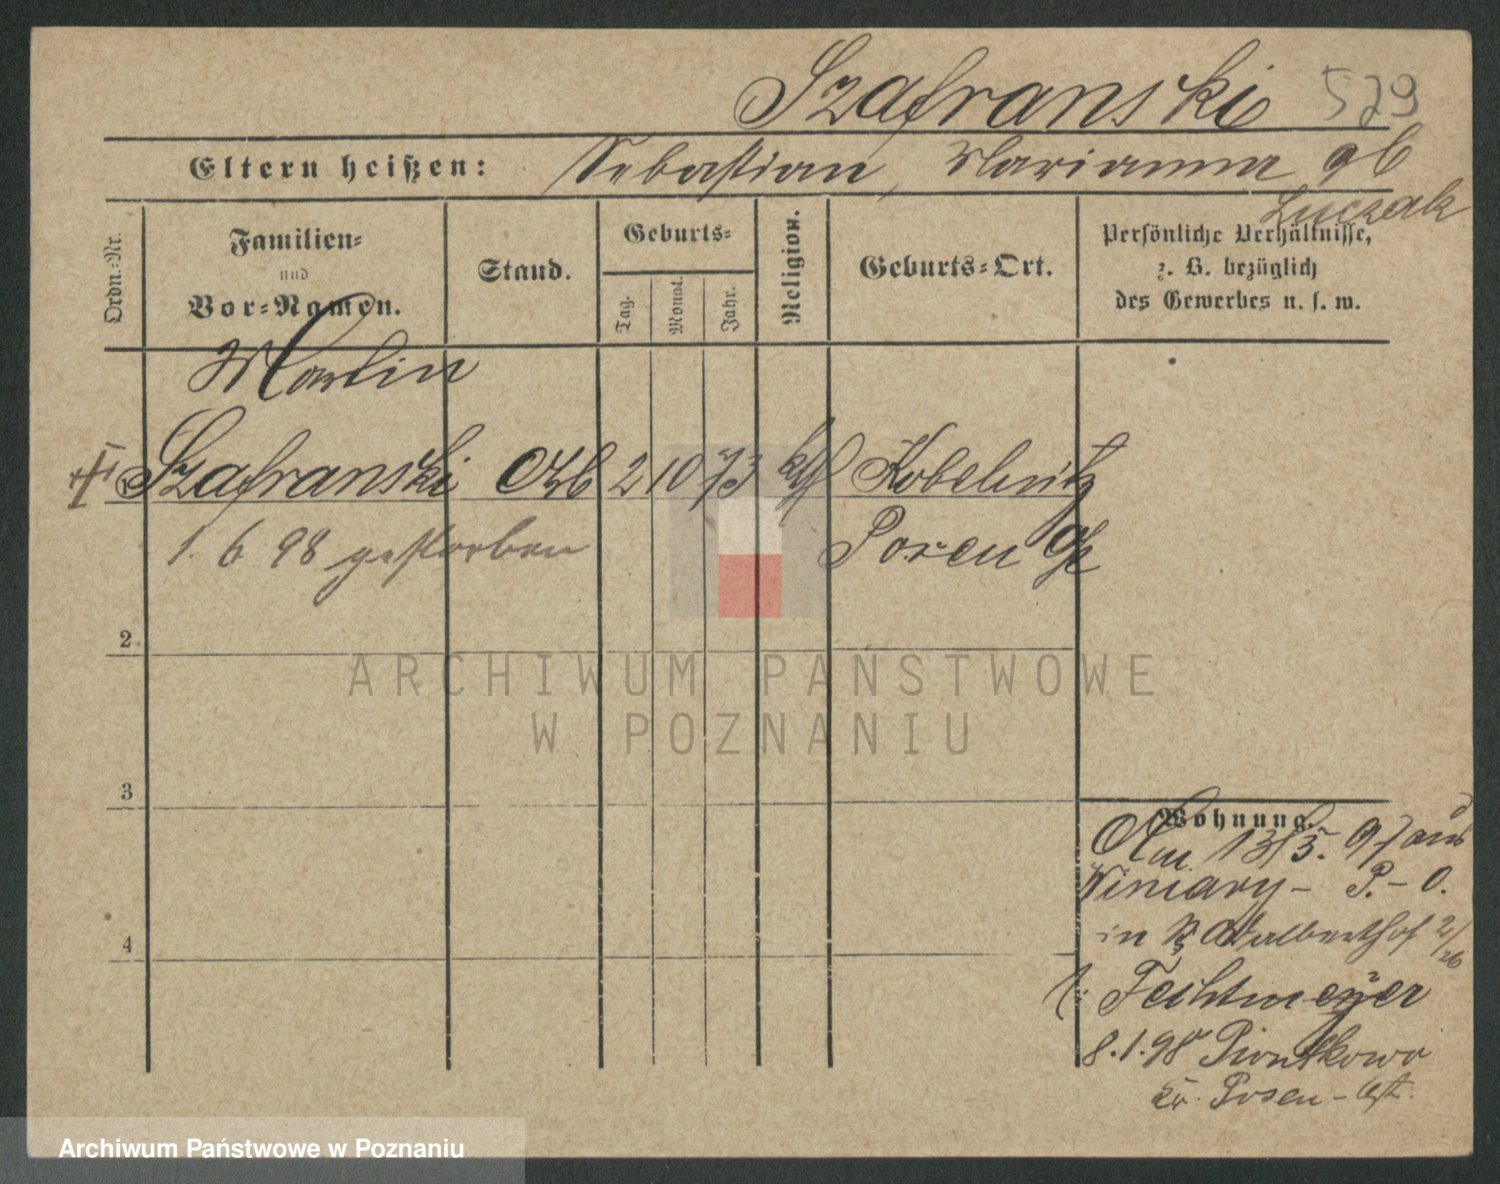 Szafranski 579
Eltern heißen: Sebastian, Marianna gb
Luczak
Ordn.-Nr.
Familien-
und
Vor-Namen.
Stand.
Geburts-
Tag.
Monat.
Jahr.
Religion.
Geburts-Ort.
Persönliche Verhältnisse,
z. B. bezüglich
des Gewerbes u. s. w.
Martin
1 Szafranski 2 10 73 kth Kobelnitz
1. 6 98 gestorben Posen
2
3
4
Wohnung.
Am 13/5. 97 aus
Winiary - P. - O.
in Adalberthof 2/26
Feihtmeyer
8.1.98 Piontkowo
Kr. Posen - Ost.
ARCHIWUM PAŃSTWOWE
W POZNANIU
Archiwum Państwowe w Poznaniu